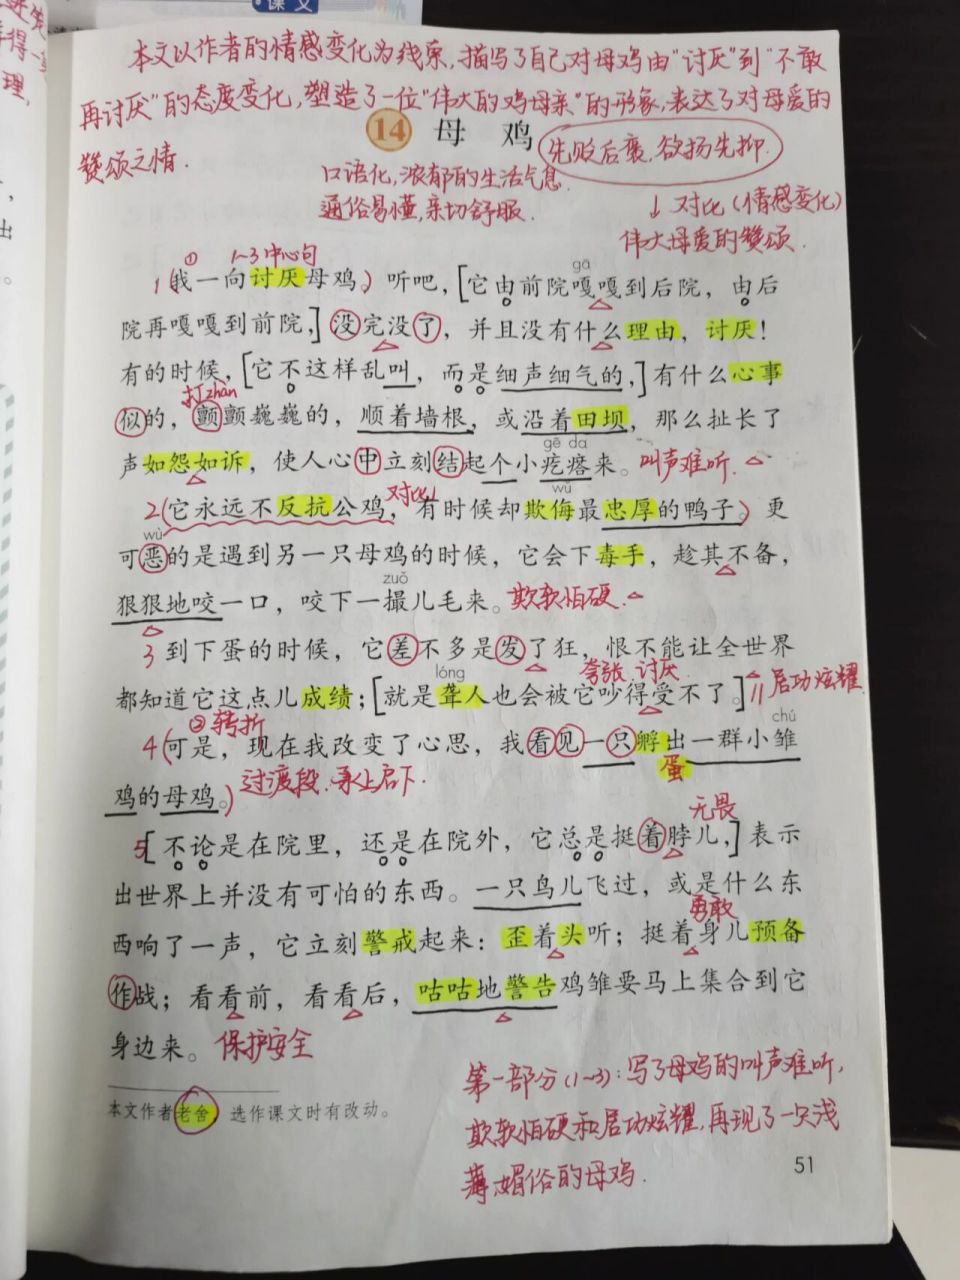 课文
本文以作者的情感变化为线索,描写了自己对母鸡由"讨厌"到"不敢
再讨厌"的态度变化,塑造了一位"伟大的鸡母亲"的形象,表达了对母爱的
赞颂之情.
14 母 鸡
先贬后褒,欲扬先抑.
口语化,浓郁的生活气息.
通俗易懂,亲切舒服.
↓ 对比(情感变化)
伟大母爱的赞颂.
① 1~3中心句
gā
1(我一向讨厌母鸡。)听吧,[它由前院嘎嘎到后院,由后
院再嘎嘎到前院,]没完没了,并且没有什么理由,讨厌!
有的时候,[它不这样乱叫,而是细声细气的,]有什么心事
打zhàn
似的,颤颤巍巍的,顺着墙根,或沿着田坝,那么扯长了
gē da
声如怨如诉,使人心中立刻结起个小疙瘩来。叫声难听.
对比 wǔ
2(它永远不反抗公鸡,有时候却欺侮最忠厚的鸭子。)更
wù
可恶的是遇到另一只母鸡的时候,它会下毒手,趁其不备,
zuǒ
狠狠地咬一口,咬下一撮儿毛来。欺软怕硬.
3 到下蛋的时候,它差不多是发了狂,恨不能让全世界
lóng 夸张.讨厌
都知道它这点儿成绩;[就是聋人也会被它吵得受不了。]居功炫耀
② 转折 chú
4(可是,现在我改变了心思,我看见一只孵出一群小雏
蛋
鸡的母鸡。)过渡段.承上启下.
无畏
5[不论是在院里,还是在院外,它总是挺着脖儿,]表示
出世界上并没有可怕的东西。一只鸟儿飞过,或是什么东
勇敢
西响了一声,它立刻警戒起来:歪着头听;挺着身儿预备
作战;看看前,看看后,咕咕地警告鸡雏要马上集合到它
身边来。保护安全
本文作者老舍,选作课文时有改动。
第一部分(1~3):写了母鸡的叫声难听,
欺软怕硬和居功炫耀,再现了一只浅
薄媚俗的母鸡.
51